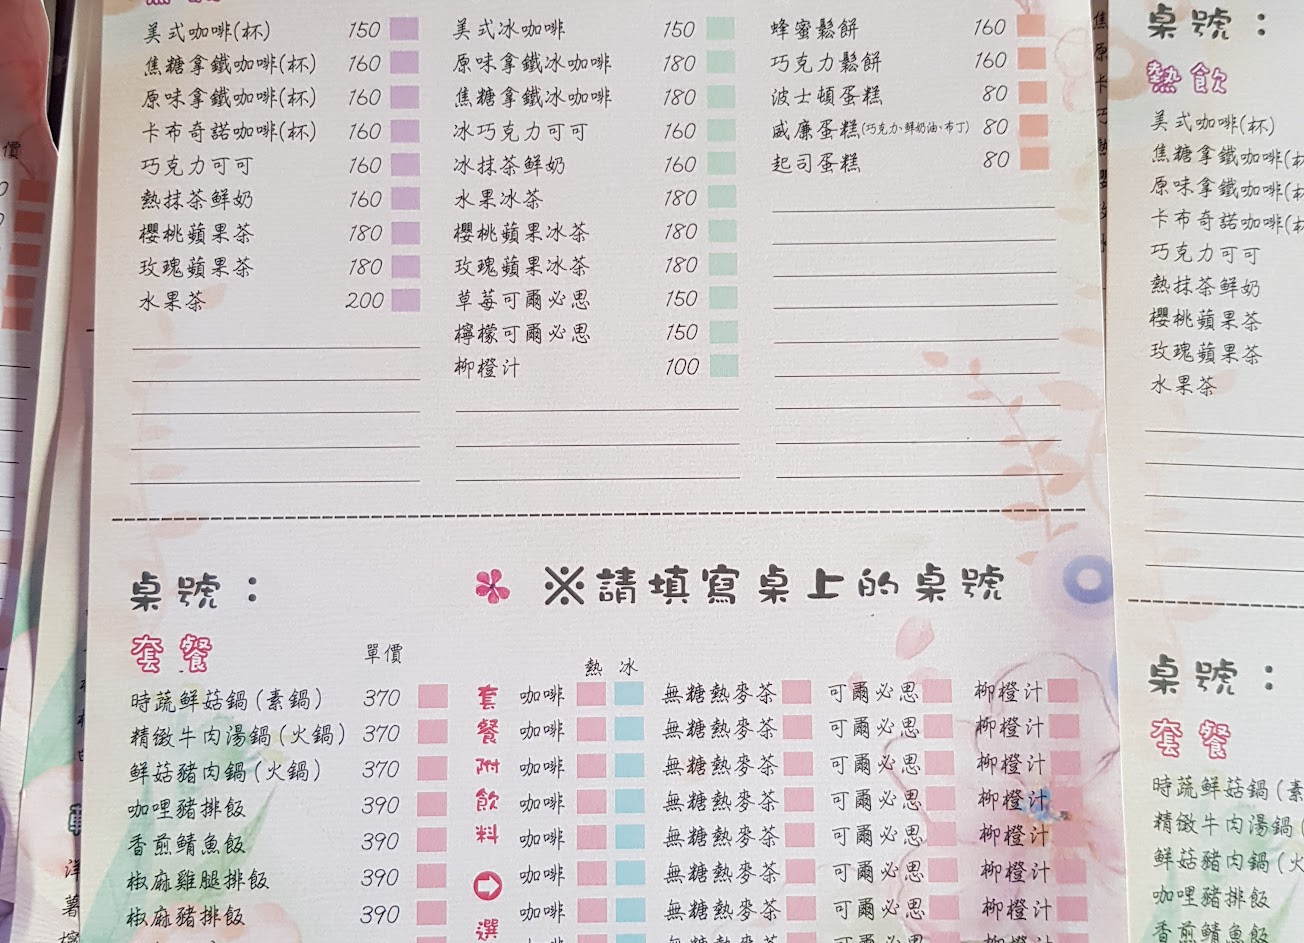 美式咖啡(杯) 150
焦糖拿鐵咖啡(杯) 160
原味拿鐵咖啡(杯) 160
卡布奇諾咖啡(杯) 160
巧克力可可 160
熱抹茶鮮奶 160
櫻桃蘋果茶 180
玫瑰蘋果茶 180
水果茶 200
美式冰咖啡 150
原味拿鐵冰咖啡 180
焦糖拿鐵冰咖啡 180
冰巧克力可可 160
冰抹茶鮮奶 160
水果冰茶 180
櫻桃蘋果冰茶 180
玫瑰蘋果冰茶 180
草莓可爾必思 150
檸檬可爾必思 150
柳橙汁 100
蜂蜜鬆餅 160
巧克力鬆餅 160
波士頓蛋糕 80
威廉蛋糕(巧克力、鮮奶油、布丁) 80
起司蛋糕 80
桌號：
※請填寫桌上的桌號
套餐 單價
熱 冰
時蔬鮮菇鍋(素鍋) 370 咖啡 無糖熱麥茶 可爾必思 柳橙汁
精緻牛肉湯鍋(火鍋) 370 咖啡 無糖熱麥茶 可爾必思 柳橙汁
鮮菇豬肉鍋(火鍋) 370 咖啡 無糖熱麥茶 可爾必思 柳橙汁
咖哩豬排飯 390 咖啡 無糖熱麥茶 可爾必思 柳橙汁
香煎鯖魚飯 390 咖啡 無糖熱麥茶 可爾必思 柳橙汁
椒麻雞腿排飯 390 咖啡 無糖熱麥茶 可爾必思 柳橙汁
椒麻豬排飯 390 咖啡 無糖熱麥茶 可爾必思 柳橙汁
套餐附飲料➡選
桌號：
熱飲
美式咖啡(杯)
焦糖拿鐵咖啡(杯
原味拿鐵咖啡(杯
卡布奇諾咖啡(杯
巧克力可可
熱抹茶鮮奶
櫻桃蘋果茶
玫瑰蘋果茶
水果茶
桌號：
套餐
時蔬鮮菇鍋(素
精緻牛肉湯鍋(
鮮菇豬肉鍋(火
咖哩豬排飯
香煎鯖魚飯